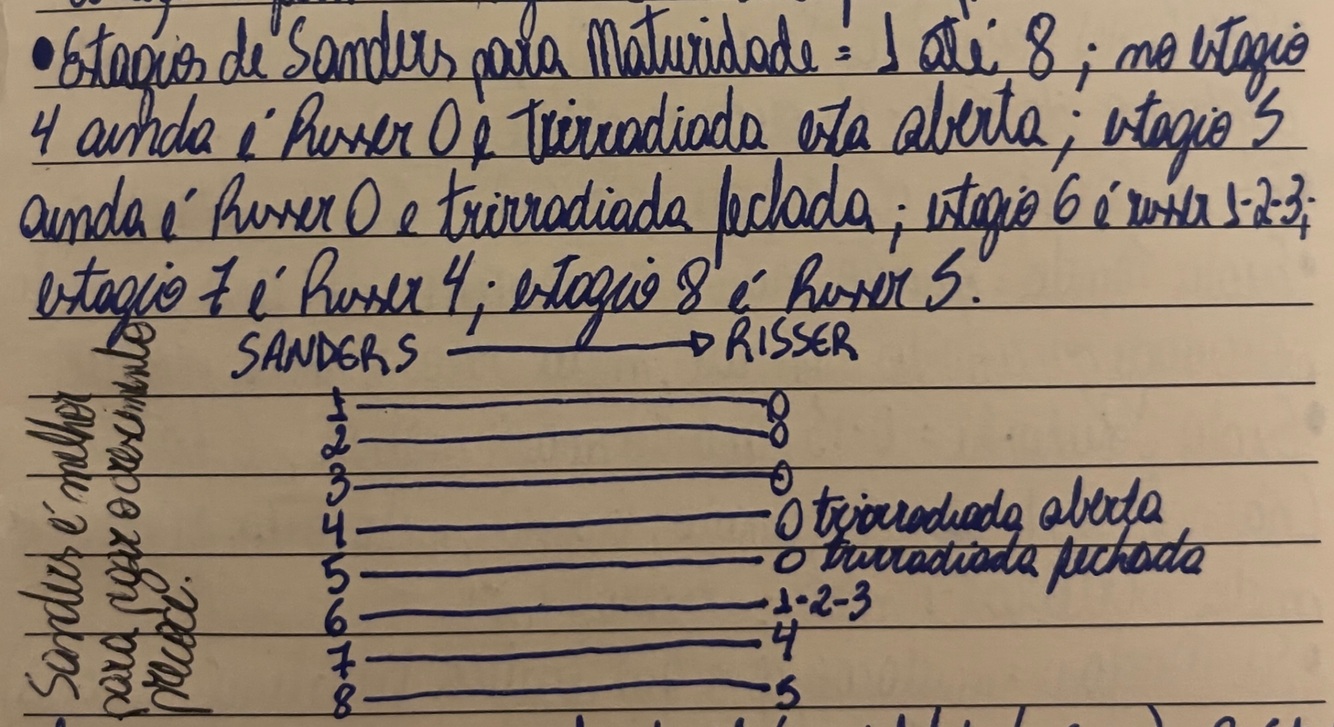 • Estagios de Sanders para Maturidade = 1 até 8 ; no estagio
4 ainda é Risser 0 e trirradiada esta aberta ; estagio 5
ainda é Risser 0 e trirradiada fechada ; estagio 6 é risser 1-2-3;
estagio 7 é Risser 4 ; estagio 8 é Risser 5.
SANDERS → RISSER
1 0
2 0
3 0
4 0 trirradiada aberta
5 0 trirradiada fechada
6 1-2-3
7 4
8 5
Sanders é melhor
para o crescimento
precoce.